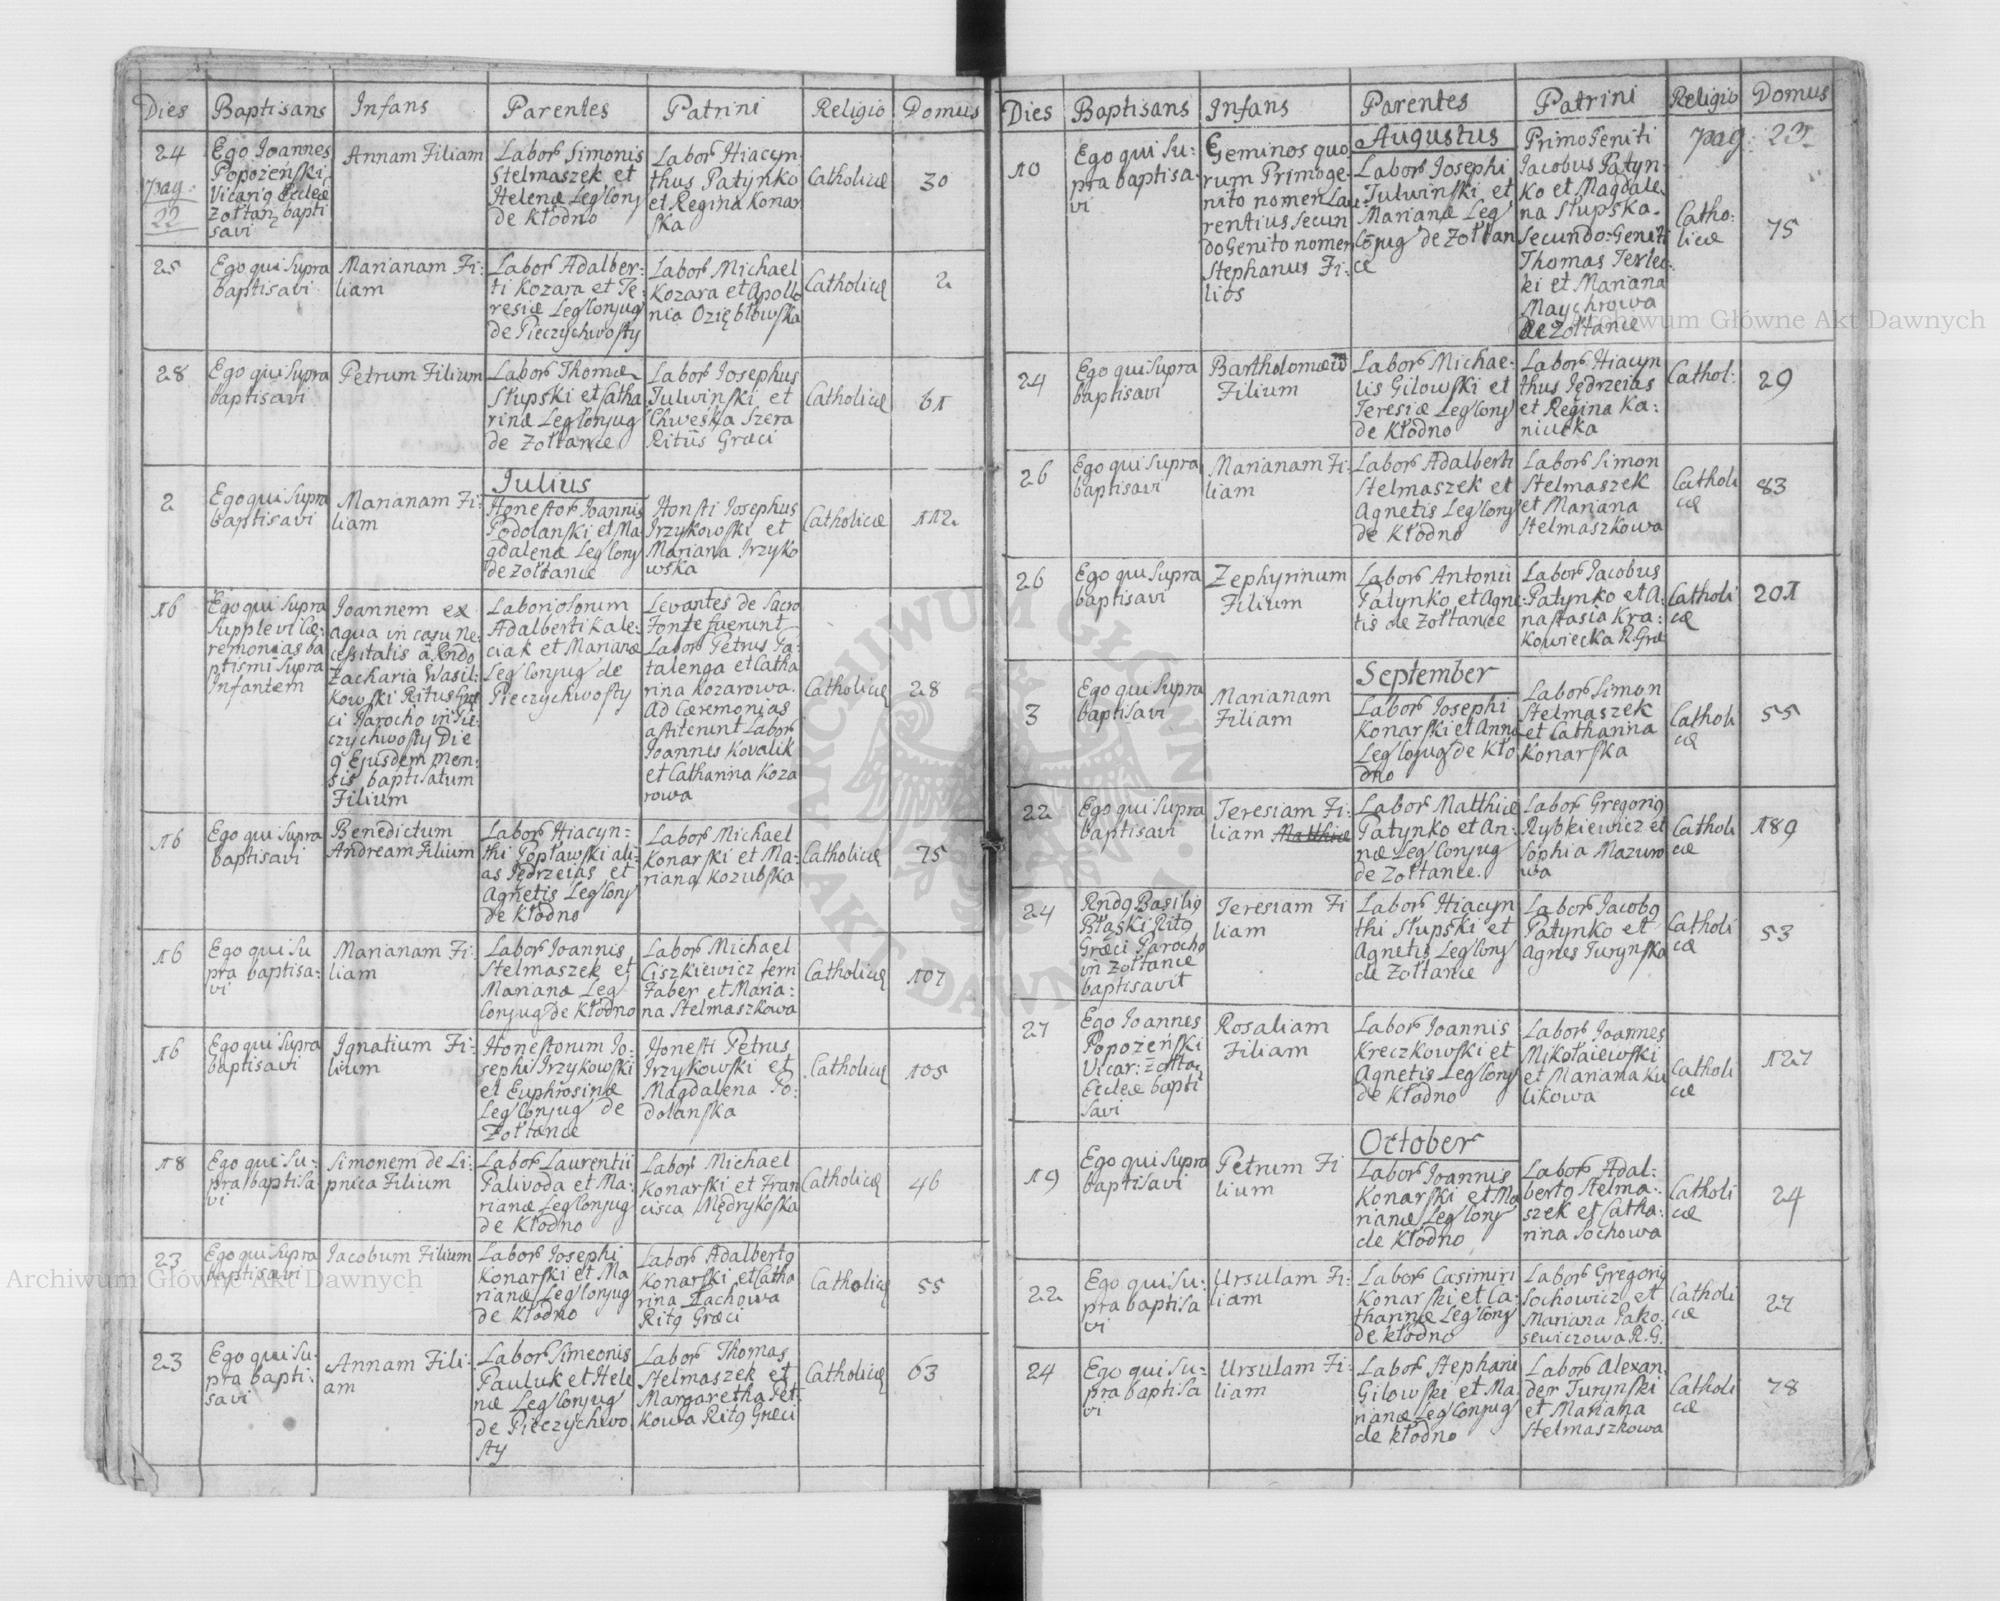 Dies Baptisans Infans Parentes Patrini Religio Domus
24
pag:
22
Ego Joannes
Popożeński
Vicari9 Eccleæ
Zołtanz bapti
savi
Annam Filiam
Labor̃ Simonis
Stelmaszek et
Helenæ Leg Conj
de Kłodno
Labor̃ Hiacyn-
thus Patynko
et Regina Konar
ska
Catholicæ
30
25
Ego qui Supra
baptisavi
Marianam Fi-
liam
Labor̃ Adalber-
ti Kozara et Te-
resiæ Leg Conjug
de Pieczychwosty
Labor̃ Michael
Kozara et Apollo
nia Oziębłowska
Catholicæ
2
28
Ego qui Supra
baptisavi
Petrum Filium
Labor̃ Thomæ
Słupski et Catha
rinæ Leg Conjug
de Zołtance
Labor̃ Josephus
Tulwinski et
Chweśka Szera
Ritûs Græci
Catholicæ
61
Julius
2
Ego qui Supra
baptisavi
Marianam Fi-
liam
Honestor Joannis
Podolanski et Ma
gdalenæ Leg Conj
de Zołtance
Honsti Josephus
Irzykowski et
Mariana Irzyko
wska
Catholicæ
112
16
Ego qui Supra
Supplevi Cæ-
remonias ba
ptismi supra
Infantem
Joannem ex
aqua in casu Ne-
cessitatis à Rndo
Zacharia Wasil-
kowski Ritus Græ
ci Parocho in Pie-
czychwosty Die
9 Ejusdem Men-
sis baptisatum
Filium
Laboriosorum
Adalberti Kale-
ciak et Marianæ
Leg Conjug de
Pieczychwosty
Levantes de Sacro
Fonte fuerunt
Labor̃ Petrus Pa-
talenga et Catha
rina Kozarowa.
Ad Cæremonias
astiterunt Labor
Joannes Kovalik
et Catharina Koza
rowa
Catholicæ
28
16
Ego qui Supra
baptisavi
Benedictum
Andream Filium
Labor̃ Hiacyn-
thi Popławski ali-
as Jędrzeias et
Agnetis Leg Conj
de Kłodno
Labor̃ Michael
Konarski et Ma-
riana Kozubska
Catholicæ
75
16
Ego qui Su
pra baptisa-
vi
Marianam Fi-
liam
Labor̃ Joannis
Stelmaszek et
Marianæ Leg
Conjug de Kłodno
Labor̃ Michael
Ciszkiewicz ferri
Faber et Maria-
na Stelmaszkowa
Catholicæ
107
16
Ego qui Supra
baptisavi
Ignatium Fi-
lium
Honestorum Jo-
sephi Irzykowski
et Euphrosinæ
Leg Conjug de
Zołtance
Honesti Petrus
Irzykowski et
Magdalena Po-
dolanska
Catholicæ
105
18
Ego qui Su-
pra baptisa
vi
Simonem de Li-
pnica Filium
Labor̃ Laurentii
Palivoda et Ma-
rianæ Leg Conjug
de Kłodno
Labor̃ Michael
Konarski et Fran
cisca Mędrykoska
Catholicæ
46
23
Ego qui Supra
baptisavi
Jacobum Filium
Labor̃ Josephi
Konarski et Ma
rianæ Leg Conjug
de Kłodno
Labor̃ Adalbert9
Konarski et Catha
rina Łachowa
Rit9 Græci
Catholicæ
55
23
Ego qui Su-
pra bapti-
savi
Annam Fili-
am
Labor̃ Simeonis
Pauluk et Hele
næ Leg Conjug
de Pieczychwo
sty
Labor̃ Thomas
Stelmaszek et
Margaretha Pet-
kowa Rit9 Græci
Catholicæ
63
Dies Baptisans Infans Parentes Patrini Religio Domus
pag: 23
Augustus
10
Ego qui Su-
pra baptisa-
vi
Geminos quo
rum Primoge-
nito nomen Lau
rentius Secun
do Genito nomen
Stephanus Fi-
lios
Labor̃ Josephi
Tulwinski et
Marianæ Leg
Cojug de Zołtan
ce
PrimoGeniti
Jacobus Patyn-
ko et Magdale-
na Słupska.
Secundo-Geniti
Thomas Terlec-
ki et Mariana
Maychrowa
de Zołtance
Catho-
licæ
75
24
Ego qui Supra
baptisavi
Bartholomæum
Filium
Labor̃ Michae-
lis Gilowski et
Teresiæ Leg Conj
de Kłodno
Labor̃ Hiacyn
thus Jędrzeias
et Regina Ka-
niucka
Cathol:
29
26
Ego qui Supra
baptisavi
Marianam Fi-
liam
Labor̃ Adalberti
Stelmaszek et
Agnetis Leg Conj
de Kłodno
Labor̃ Simon
Stelmaszek
et Mariana
Stelmaszkowa
Catholi
cæ
83
26
Ego qui Supra
baptisavi
Zephyrinum
Filium
Labor̃ Antonii
Patynko et Agne-
tis de Zołtance
Labor̃ Jacobus
Patynko et A-
nastasia Kra-
kowiecka R. Græ
Catholi
cæ
201
September
3
Ego qui Supra
baptisavi
Marianam
Filiam
Labor̃ Josephi
Konarski et Annæ
Leg Cojug de Kło
dno
Labor̃ Simon
Stelmaszek
et Catharina
Konarska
Catholi
cæ
55
22
Ego qui Supra
baptisavi
Teresiam Fi-
liam Matthiæ
Labor̃ Matthiæ
Patynko et An-
næ Leg Conjug
de Zołtance.
Labor̃ Gregori9
Rybkiewicz et
Sophia Mazuro
wa
Catholi
cæ
189
24
Rnd9 Basili9
Płaski Rit9
Græci Paroch9
in Zołtance
baptisavit
Teresiam Fi
liam
Labor̃ Hiacyn
thi Słupski et
Agnetis Leg Conj
de Zołtance
Labor̃ Jacob9
Patynko et
Agnes Turynska
Catholi
cæ
53
27
Ego Joannes
Popożeński
Vicar: Zołtan
Eccleæ bapti
savi
Rosaliam
Filiam
Labor̃ Joannis
Kreczkowski et
Agnetis Leg Conj
de Kłodno
Labor̃ Joannes
Mikołaiewski
et Mariana Ku
likowa
Catholi
cæ
127
October
19
Ego qui Supra
baptisavi
Petrum Fi
lium
Labor̃ Joannis
Konarski et Ma
rianæ Leg Conj
de Kłodno
Labor̃ Adal-
bert9 Stelma-
szek et Catha-
rina Sochowa
Catholi
cæ
24
22
Ego qui Su-
pra baptisa
vi
Ursulam Fi-
liam
Labor̃ Casimiri
Konarski et Ca-
tharinæ Leg Conj
de Kłodno
Labor̃ Gregori9
Sochowicz et
Mariana Pako-
sewiczowa R.G.
Catholi
cæ
27
24
Ego qui Su-
pra baptisa
vi
Ursulam Fi-
liam
Labor̃ Stephani
Gilowski et Ma
rianæ Leg Conjug
de Kłodno
Labor̃ Alexan
der Turynski
et Mariana
Stelmaszkowa
Catholi
cæ
78
Archiwum Główne Akt Dawnych
Archiwum Główne Akt Dawnych
ARCHIWUM GŁÓWNE AKT DAWNYCH